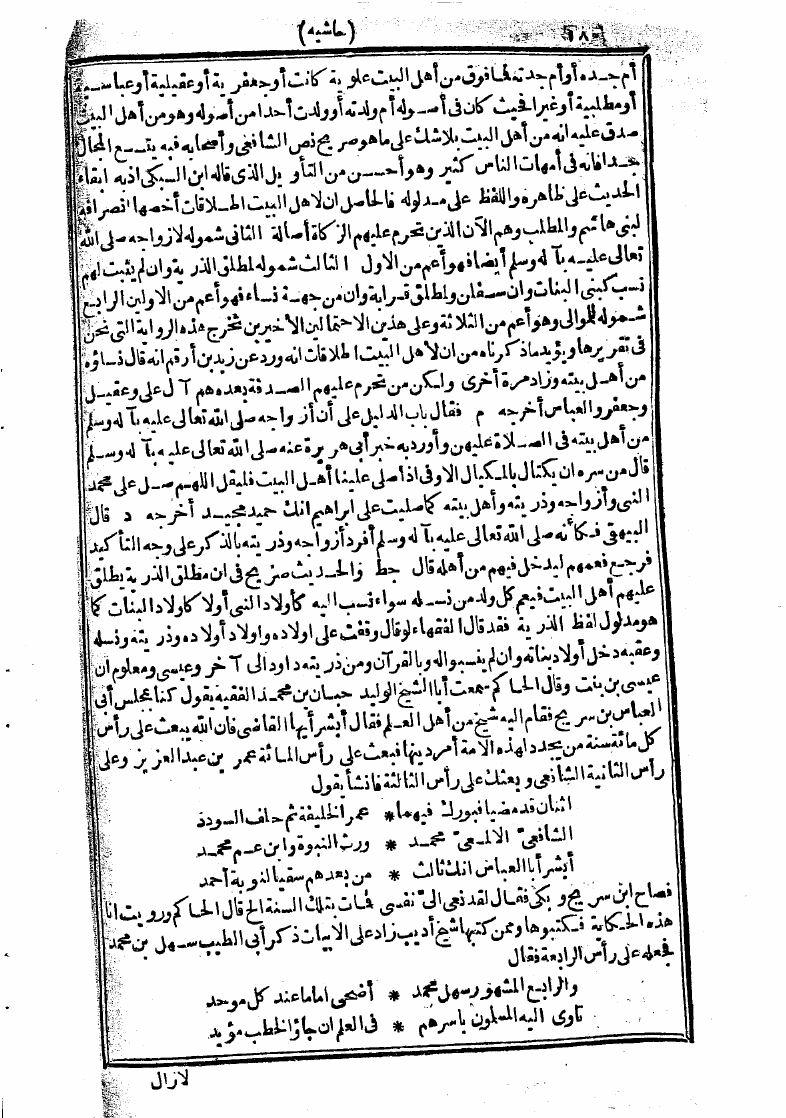 (حاشيه)
أم جده أو أم جدته فما فوق من أهل البيت علوية كانت أو جعفرية أو عقيلية أو عباسية
أو مطلبية أو غيرا فحيث كان فى أصوله أم ولدته أو ولدت أحدا من أصوله وهو من أهل البيت
صدق عليه انه من أهل البيت بلا شك على ما هو صريح نص الشافعى وأصحابه فبه يتسع المجال
جدا فانه فى أمهات الناس كثير وهو أحسن من التأويل الذى قاله ابن السبكى اذ به ابقاء
الحديث على ظاهره واللفظ على مدلوله فالحاصل ان لاهل البيت اطلاقات أخصها انصرافه
لبنى هاشم والمطلب وهم الآن الذين تحرم عليهم الزكاة أصالة الثانى شموله لازواجه صلى الله
تعالى عليه بآله وسلم أيضا فهو أعم من الاول الثالث شموله لمطلق الذرية وان لم يثبت لهم
نسب كبنى البنات وان سفلن ولمطلق قرابة وان من جهة نساء فهو أعم من الاولين الرابع
شموله للموالى وهو أعم من الثلاثة وعلى هذين الاحتمالين الأخيرين تخرج هذه الرواية التى نحن
فى تقريرها ويؤيد ما ذكرناه من ان لأهل البيت اطلاقات انه ورد عن زيد بن أرقم انه قال نساؤه
من أهل بيته وزاد مرة أخرى ولكن من تحرم عليهم الصدقة بعده هم آل على وعقيل
وجعفر والعباس أخرجه م فقال باب الدليل على أن أزواجه صلى الله تعالى عليه بآله وسلم
من أهل بيته فى الصلاة عليهن وأورد به خبر أبى هريرة عنه صلى الله تعالى عليه بآله وسلم
قال من سره ان يكتال بالمكيال الاوفى اذا صلى علينا أهل البيت فليقل اللهم صل على محمد
النبى وأزواجه وذريته وأهل بيته كما صليت على ابراهيم انك حميد مجيد أخرجه د قال
البيهقى فكأنه صلى الله تعالى عليه بآله وسلم أفرد أزواجه وذريته بالذكر على وجه التأكيد
فرجع فعمهم ليدخل فيهم من أهله قال حط والحديث صريح فى ان مطلق الذرية يطلق
عليهم أهل البيت فيعم كل ولد من نسله سواء نسب اليه كأولاد النبى أو لا كاولاد البنات كما
هو مدلول لفظ الذرية فقد قال الفقهاء لو قال وقفت على اولاده واولاد أولاده وذريته ونسله
وعقبه دخل أولاد بناته وان لم ينسبوا له وبالقرآن ومن ذريته داود الى آخر وعيسى ومعلوم ان
عيسى بن بنت وقال الحاكم سمعت أبا الشيخ الوليد حسان بن محمد الفقيه يقول كنا بمجلس أبى
العباس بن سريج فقام اليه شيخ من أهل العلم فقال أبشر أيها القاضى فان الله يبعث على رأس
كل مائة سنة من يجدد لهذه الامة أمر دينها فبعث على رأس المائة عمر بن عبد العزيز وعلى
رأس الثانية الشافعى وبعثك على رأس الثالثة فانشأ يقول
اثنان قد مضيا فبورك فيهما * عمر الخليفة ثم حلف السودد
الشافعى الالمعى محمد * ورث النبوة وابن عم محمد
أبشر أبا العباس انك ثالث * من بعدهم سقيا لنوبة أحمد
فصاح ابن سريج وبكى فقال لقد نعى الى نفسى فمات بتلك السنة الخ قال الحاكم ورويت انا
هذه الحكاية فكتبوها وممن كتبها شيخ أديب زاد على الابيات ذكر أبى الطيب سهل بن محمد
فجعله على رأس الرابعة فقال
والرابع المشهور سهل محمد * أضحى اماما عند كل موحد
تاوى اليه المسلمون باسرهم * فى العلم ان جاؤا لخطب مؤيد
لازال